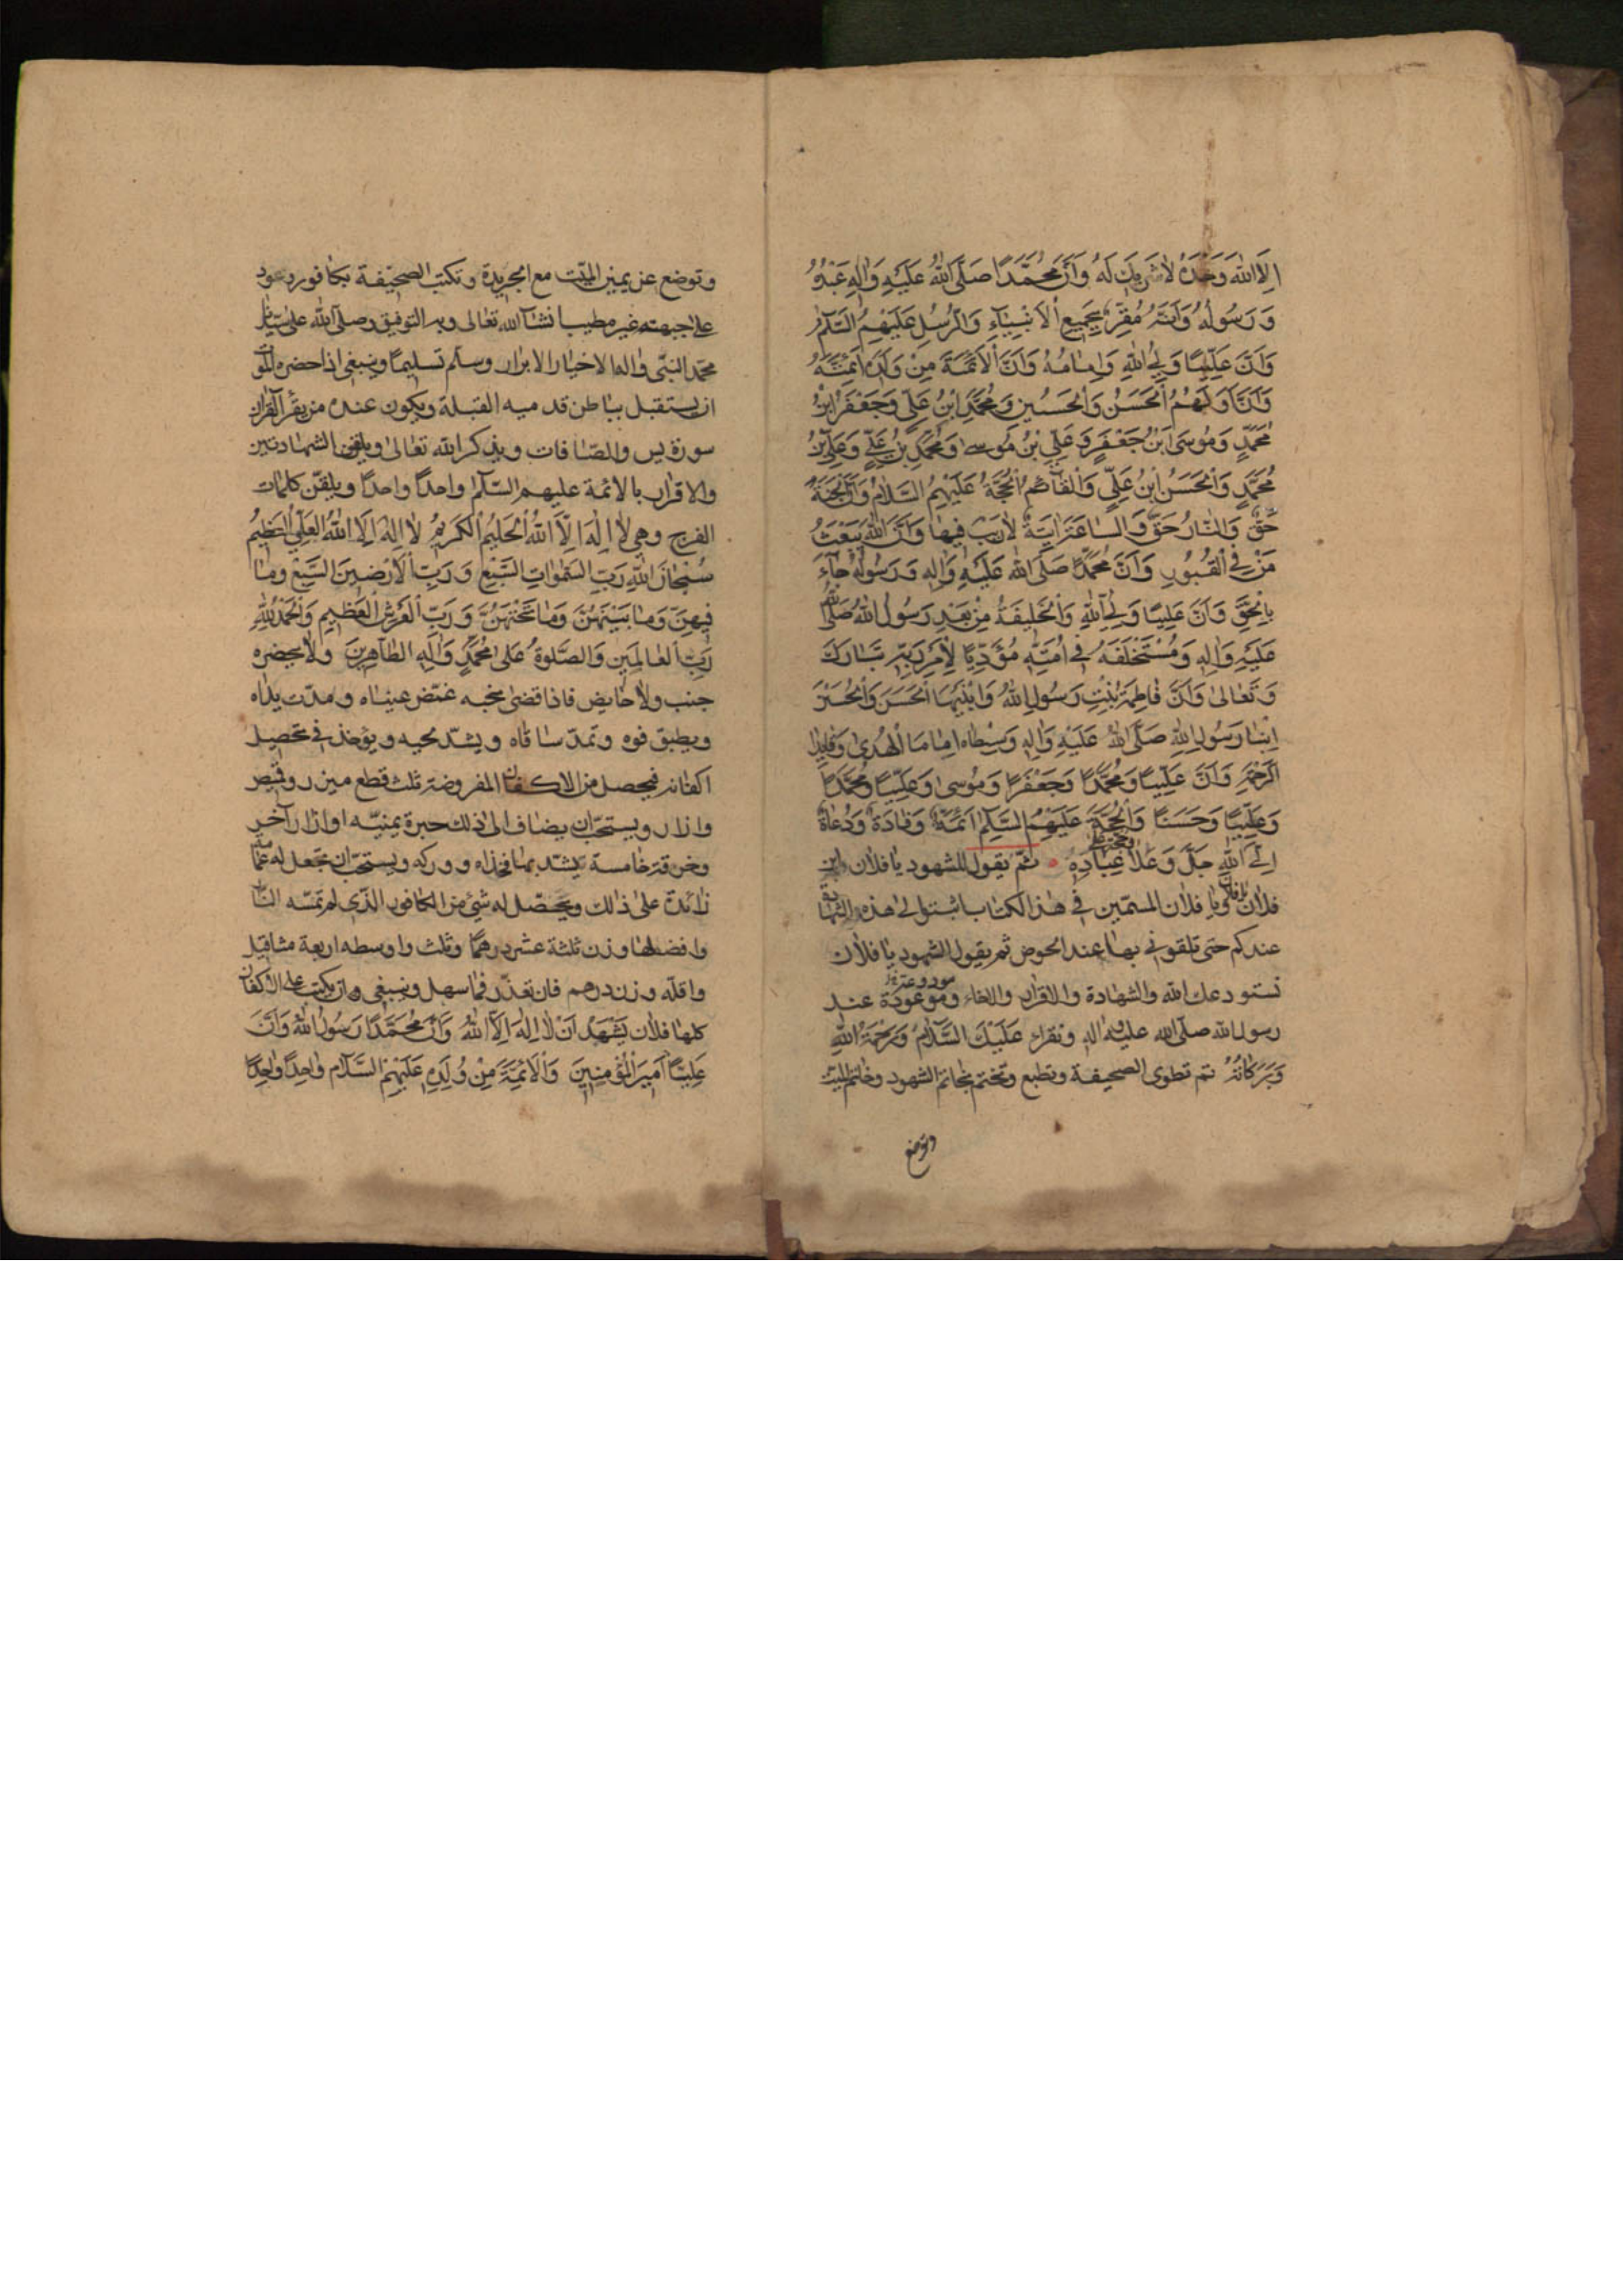 اِلَّا اللّٰهُ وَحْدَهُ لَا شَرِيكَ لَهُ وَاَنَّ مُحَمَّدًا صَلَّى اللّٰهُ عَلَيْهِ وَاٰلِهِ عَبْدُهُ
وَرَسُولُهُ وَاَنَّهُ مُقِرٌّ بِجَمِيعِ الْاَنْبِيَاءِ وَالرُّسُلِ عَلَيْهِمُ السَّلَامُ
وَاَنَّ عَلِيًّا وَلِيُّ اللّٰهِ وَاِمَامُهُ وَاَنَّ الْاَئِمَّةَ مِنْ وَلَدِهِ اَئِمَّتُهُ
وَاَنَّ اَوَّلَهُمُ الْحَسَنُ وَالْحُسَيْنِ وَمُحَمَّدِ ابْنُ عَلِيٍّ وَجَعْفَرُ ابْنُ
مُحَمَّدٍ وَمُوسَى ابْنُ جَعْفَرٍ وَعَلِيِّ بْنُ مُوسىٰ وَمُحَمَّدِ بْنُ عَلِيٍّ وَعَلِيِّ بْنُ
مُحَمَّدٍ وَالْحَسَنُ ابْنُ عَلِيٍّ وَالْقَائِمُ الْحُجَّةُ عَلَيْهِمُ السَّلَامُ وَاَنَّ الْجَنَّةَ
حَقٌّ وَالنَّارُ حَقٌّ وَالسَّاعَةَ اٰتِيَةٌ لَا رَيْبَ فِيهَا وَاَنَّ اللّٰهَ يَبْعَثُ
مَنْ فِي الْقُبُورِ وَاَنَّ مُحَمَّدًا صَلَّى اللّٰهُ عَلَيْهِ وَاٰلِهِ وَرَسُولُهُ جَاءَ
بِالْحَقِّ وَاَنَّ عَلِيًّا وَلِيُّ اللّٰهِ وَالْخَلِيفَةُ مِنْ بَعْدِ رَسُولِ اللّٰهِ صَلَّى اللّٰهُ
عَلَيْهِ وَاٰلِهِ وَمُسْتَخْلَفَهُ فِي اُمَّتِهِ مُؤَدِّيًا لِاَمْرِ رَبِّهِ تَبَارَكَ
وَتَعَالىٰ وَاَنَّ فَاطِمَةَ بِنْتِ رَسُولِ اللّٰهِ وَابْنَيْهَا الْحَسَنَ وَالْحُسَيْنَ
اِبْنَا رَسُولِ اللّٰهِ صَلَّى اللّٰهُ عَلَيْهِ وَاٰلِهِ وَسِبْطَاه اِمَامَا الْهُدىٰ وَقَائِدَا
الرَّحْمَةِ وَاَنَّ عَلِيًّا وَمُحَمَّدًا وَجَعْفَرًا وَمُوسىٰ وَعَلِيًّا وَمُحَمَّدًا
وَعَلِيًّا وَحَسَنًا وَالْحُجَّةَ عَلَيْهِمُ السَّلَامِ اَئِمَّةٌ وَقَادَةٌ وَدُعَاةٌ
اِلَى اللّٰهِ جَلَّ وَعَلَا عِبَادِهِ ثم يقول للشهود يا فلان ابن
فلان ويا فلان المسمّين في هذا الكتاب اثبتوا لي هذه الشهادة
عندكم حتى تلقوني بها عند الحوض ثم يقول الشهود يا فلان
نستودعك الله والشهادة والاقرار والاخاء وموعودة عند
رسول الله صلّى الله عليه واله ونقراء عَلَيْكَ السَّلَامُ وَرَحْمَةُ اللّٰهِ
وَبَرَكَاتُهُ ثم تطوى الصحيفة وتطبع وتختم بخاتم الشهود وخاتم الميت
وتوضع
وتوضع عن يمين الميّت مع الجريدة وتكتب الصحيفة بكافور وعود
على جبهته غير مطيب انشآ الله تعالى وبه التوفيق وصلى الله على سيدنا
محمّد النبّى واله الاخيار الابرار وسلم تسليمًا وينبغي اذا حضره الموت
ان يستقبل بباطن قدميه القبلة ويكون عنده من يقرأ القرآن
سورة يس والصّافات ويذكر الله تعالى ويلقن الشهادتين
والاقرار بالائمة عليهم السّلام واحدًا واحدًا ويلقّن كلمات
الفرج وهي لَا اِلٰهَ اِلَّا اللّٰهُ الْحَلِيمُ الْكَرِيمُ لَا اِلٰهَ اِلَّا اللّٰهُ الْعَلِيُّ الْعَظِيمُ
سُبْحَانَ اللّٰهِ رَبِّ السَّمٰوَاتِ السَّبْعِ وَرَبِّ الْاَرَضِينَ السَّبْعِ وَمَا
فِيهِنَّ وَمَا بَيْنَهُنَّ وَمَا تَحْتَهُنَّ وَرَبِّ الْعَرْشِ الْعَظِيمِ وَالْحَمْدُ لِلّٰهِ
رَبِّ الْعَالَمِينَ وَالصَّلوةُ عَلىٰ مُحَمَّدٍ وَاٰلِهِ الطَّاهِرِينَ ولا يحضره
جنب ولا حايض فاذا قضى نحبه غمّض عيناه ومدّت يداه
ويطبق فوه وتمدّ ساقاه ويشدّ لحيه ويؤخذ في تحصيل
اكفانه فيحصل من الاكفان المفروضة ثلث قطع ميزر وقميص
وازار ويستحبّ ان يضاف الى ذلك حبرة يمنيّه او ازار آخر
وخرقة خامسة يشدّ بها فخذاه ووركه ويستحبّ ان تجعل له عمامة
زائدة على ذلك ويحصّل له شئ من الكافور الذّي لم تمسّه النّار
وافضلها وزن ثلثة عشر درهمًا وثلث واوسطه اربعة مثاقيل
واقلّه وزن درهم فان تعذّر فما سهل وينبغي وان يكتب على الاكفان
كلها فلان يَشْهَدُ اَنْ لَا اِلٰهَ اِلَّا اللّٰهُ وَاَنَّ مُحَمَّدًا رَسُولُ اللّٰهِ وَاَنَّ
عَلِيًّا اَمِيرَ الْمُؤْمِنِينَ وَالْاَئِمَّةَ مِنْ وُلْدِهِ عَلَيْهِمُ السَّلَام وَاحِدًا وَاحِدًا